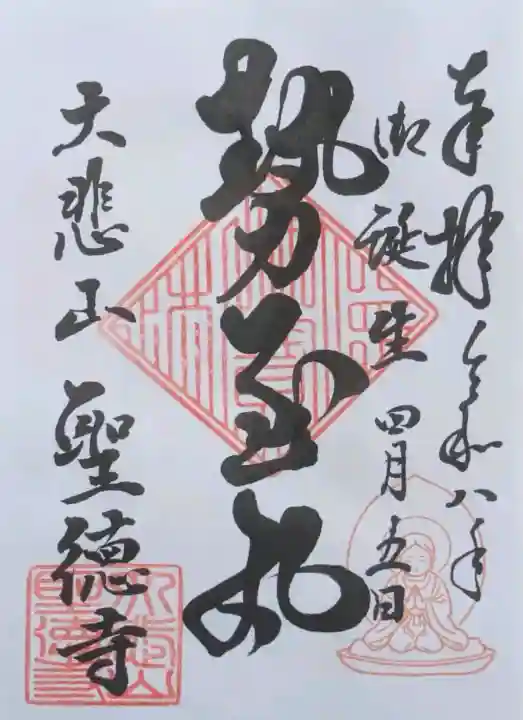 奉拝 令和八年
御誕生 四月五日
勢至丸
大悲山 聖徳寺